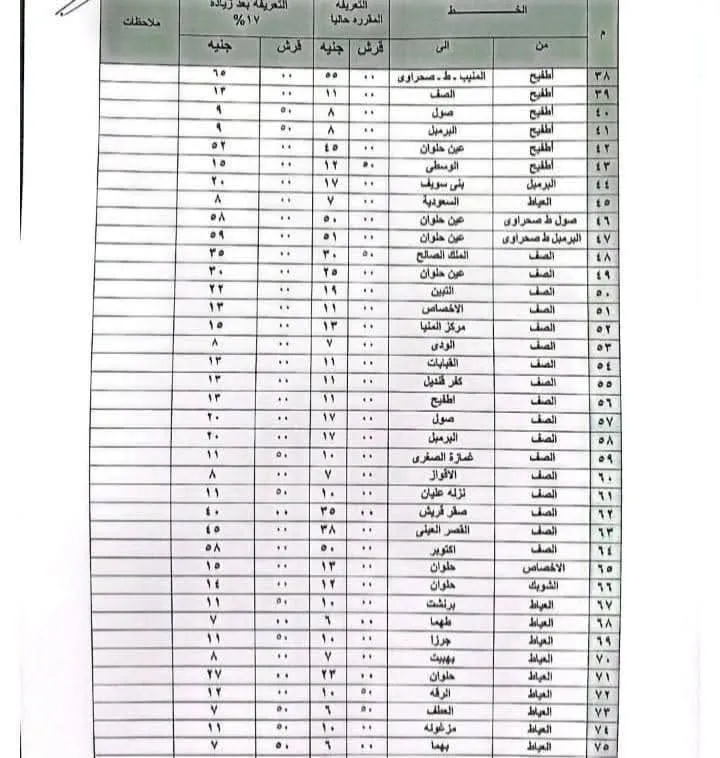 م الخــــط التعريفة المقررة حاليا التعريفة بعد زيادة ١٧% ملاحظات
من الى قرش جنيه قرش جنيه
٣٨ أطفيح المنيب ـ ط ـ صحراوى ٠٠ ٥٥ ٠٠ ٦٥
٣٩ أطفيح الصف ٠٠ ١١ ٠٠ ١٣
٤٠ أطفيح صول ٠٠ ٨ ٥٠ ٩
٤١ أطفيح البرمبل ٠٠ ٨ ٥٠ ٩
٤٢ أطفيح عين حلوان ٠٠ ٤٥ ٠٠ ٥٢
٤٣ أطفيح الوسطى ٥٠ ١٢ ٠٠ ١٥
٤٤ البرمبل بنى سويف ٠٠ ١٧ ٠٠ ٢٠
٤٥ العياط السعودية ٠٠ ٧ ٠٠ ٨
٤٦ صول ط صحراوى عين حلوان ٠٠ ٥٠ ٠٠ ٥٨
٤٧ البرمبل ط صحراوى عين حلوان ٠٠ ٥١ ٠٠ ٥٩
٤٨ الصف الملك الصالح ٥٠ ٣٠ ٠٠ ٣٥
٤٩ الصف عين حلوان ٠٠ ٢٥ ٠٠ ٣٠
٥٠ الصف التبين ٠٠ ١٩ ٠٠ ٢٢
٥١ الصف الاخصاص ٠٠ ١١ ٠٠ ١٣
٥٢ الصف مركز المنيا ٠٠ ١٣ ٠٠ ١٥
٥٣ الصف الودى ٠٠ ٧ ٠٠ ٨
٥٤ الصف القبابات ٠٠ ١١ ٠٠ ١٣
٥٥ الصف كفر قنديل ٠٠ ١١ ٠٠ ١٣
٥٦ الصف اطفيح ٠٠ ١١ ٠٠ ١٣
٥٧ الصف صول ٠٠ ١٧ ٠٠ ٢٠
٥٨ الصف البرمبل ٠٠ ١٧ ٠٠ ٢٠
٥٩ الصف غمازة الصغرى ٠٠ ١٠ ٥٠ ١١
٦٠ الصف الاقواز ٠٠ ٧ ٠٠ ٨
٦١ الصف نزله عليان ٠٠ ١٠ ٥٠ ١١
٦٢ الصف صقر قريش ٠٠ ٣٥ ٠٠ ٤٠
٦٣ الصف القصر العينى ٠٠ ٣٨ ٠٠ ٤٥
٦٤ الصف اكتوبر ٠٠ ٥٠ ٠٠ ٥٨
٦٥ الاخصاص حلوان ٠٠ ١٣ ٠٠ ١٥
٦٦ الشوبك حلوان ٠٠ ١٢ ٠٠ ١٤
٦٧ العياط برنشت ٠٠ ١٠ ٥٠ ١١
٦٨ العياط طهما ٠٠ ٦ ٠٠ ٧
٦٩ العياط جرزا ٠٠ ١٠ ٥٠ ١١
٧٠ العياط بهبيت ٠٠ ٧ ٠٠ ٨
٧١ العياط حلوان ٠٠ ٢٣ ٠٠ ٢٧
٧٢ العياط الرقه ٥٠ ١٠ ٠٠ ١٢
٧٣ العياط العطف ٥٠ ٦ ٥٠ ٧
٧٤ العياط مزغونه ٠٠ ١٠ ٥٠ ١١
٧٥ العياط بهما ٠٠ ٦ ٥٠ ٧